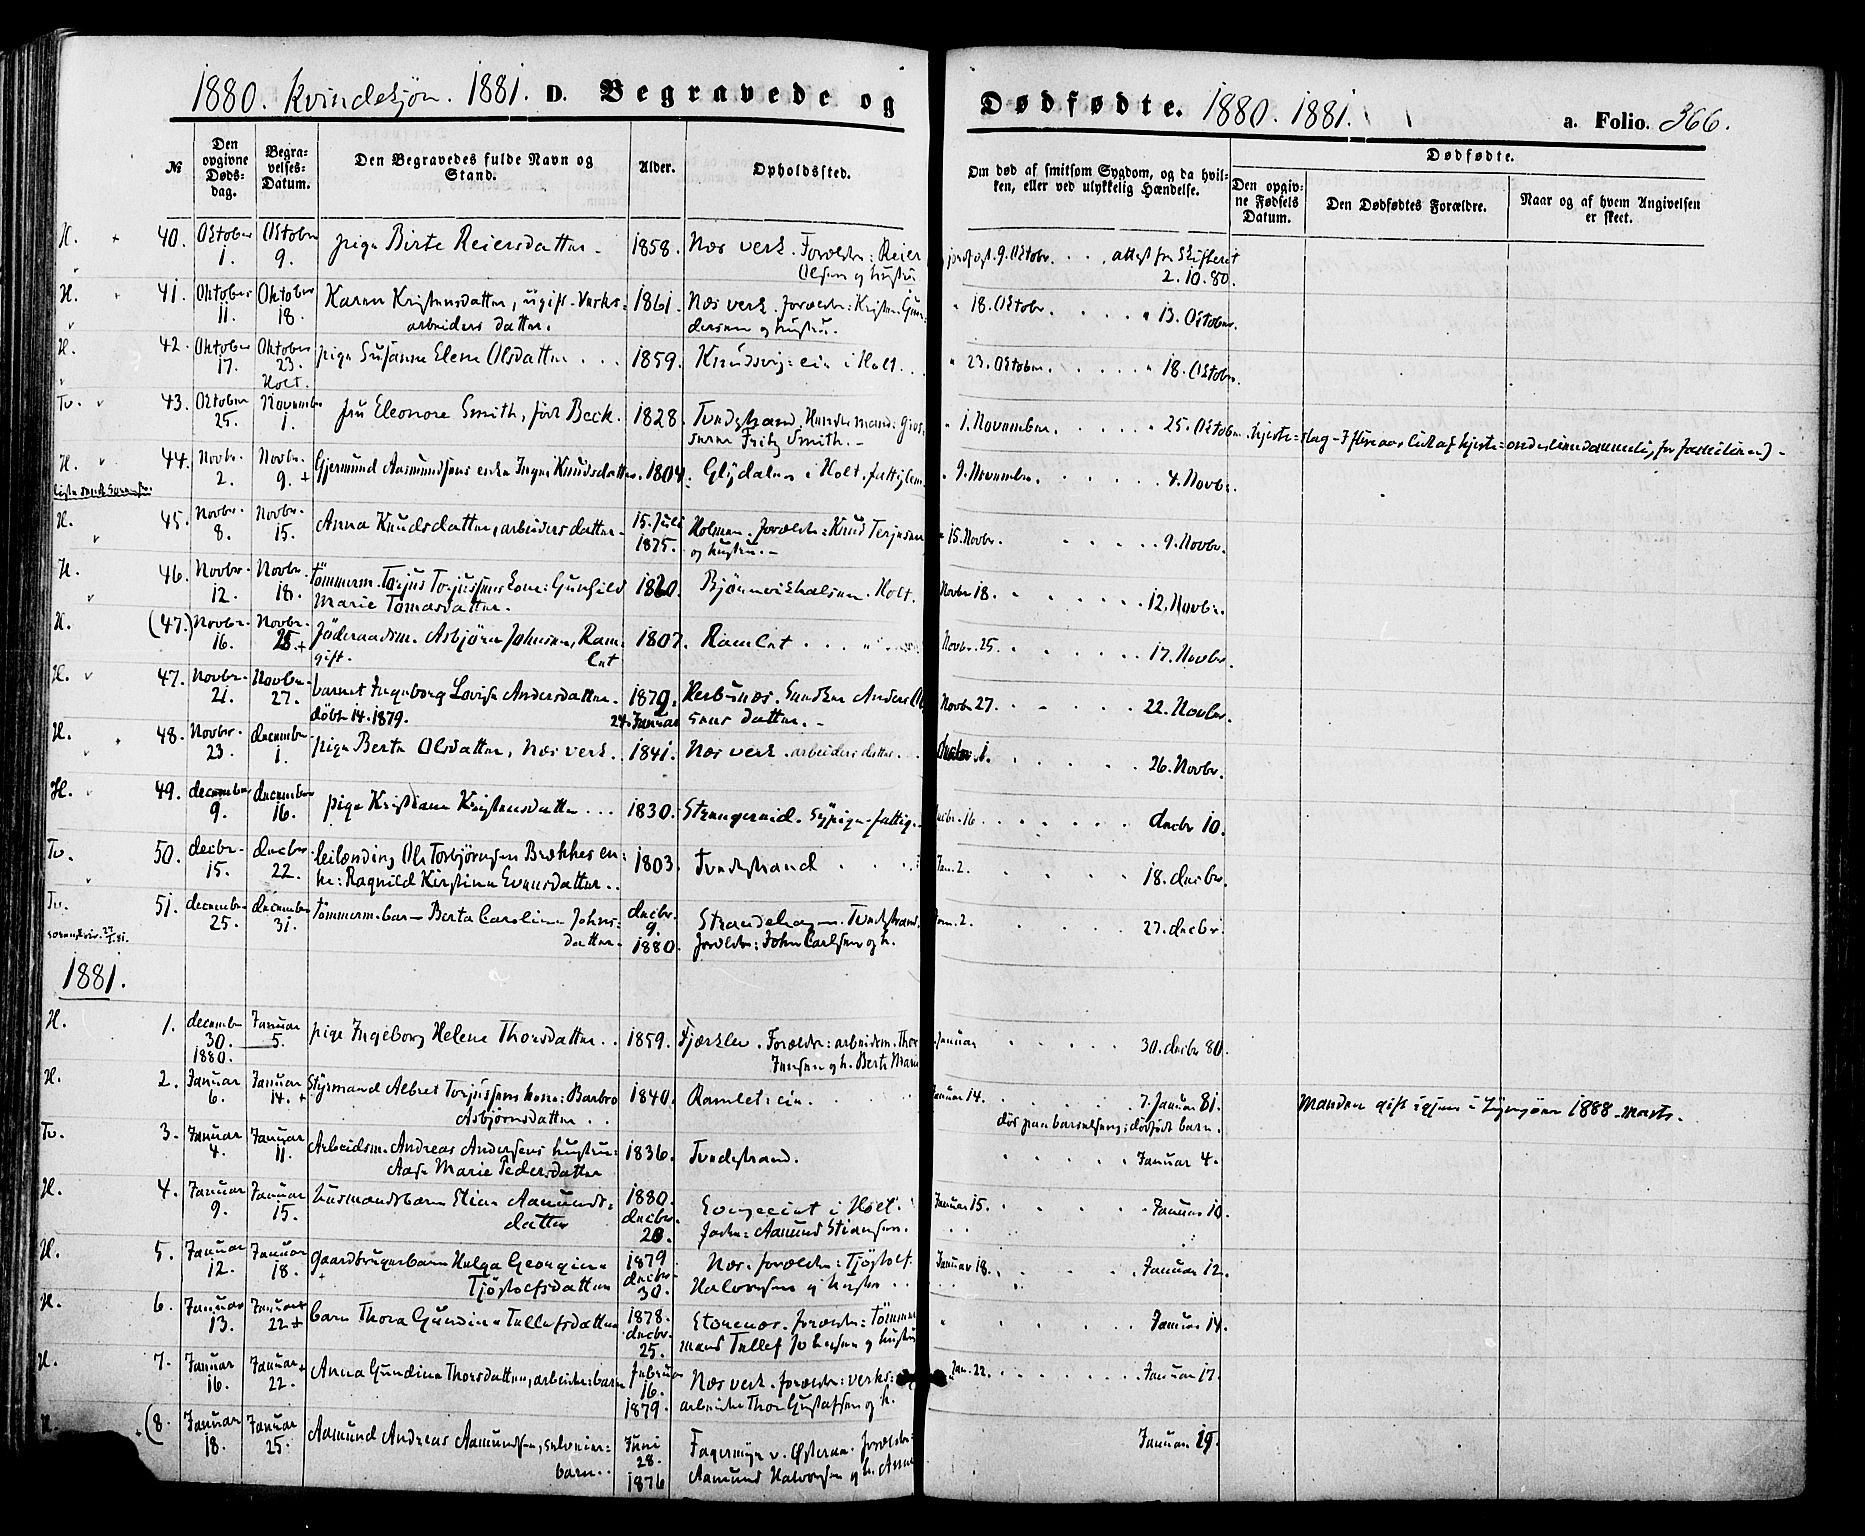 1880. Kvindekjøn. 1881. D. Begravede og Dødfødte. 1880. 1881. a. Folio. 366.
№
Den opgivne Døds-dag.
Begra-velses-Datum.
Den Begravedes fulde Navn og Stand.
Alder.
Opholdssted.
Om død af smitsom Sygdom, og da hvil-ken, eller ved ulykkelig Hændelse.
Dødfødte.
Den opgiv-ne Fødsels Datum.
Den Dødfødtes Forældre.
Naar og af hvem Angivelsen er skeet.
H. 40. Oktober 1. Oktober 9. pige Birte Reiersdatter. 1858. Næs verk. Forældre: Reier
Olsen og hustru
9. Oktbr. attest fra Skifteret
2.10.80.
H. 41. Oktober 11. Oktober 18. Karen Kristensdatter, ugift. Verks-
arbeiders datter. 1861. Næs verk. forældre: Kristen Gun-
dersen og hustru.
18. Oktobr. 13. Oktober.
H. 42. Oktober 17. Oktober 23. Holt. pige Susanne Elene Olsdatter 1859. Knudsvig: eie i Holt.
23. Oktober. 18. Oktober.
Tv. 43. Oktober 25. November 1. fru Eleonore Smith, født Beck. 1828. Tvedestrand. Hendes mand: gros-
serer Fritz Smith.
1. November. 25. Oktober.
H. 44. Novbr. 2. Novbr. 9. Gjermund Aamundsens enke Inger Knudsdatter. 1804. Glydalen i Holt. fattiglem
9. November. 4. Novbr.
H. 45. Novbr. 8. Novbr. 15. Anna Knudsdatter, arbeiders datter. 15. Juli 1875. Holmen. forældre: Knud Terjesen
og hustru.
15. Novbr. 9. Novbr.
H. 46. Novbr. 12. Novbr. 18. tömmerm. Torjus Torjussens kone: Gunhild
Marie Tomasdatter. 1820. Bjønnvikhalsen. Holt.
Novbr 18. 12. Novbr.
H. (47.) Novbr. 16. Novbr. 25. Föderaadsm. Asbjørn Johnsen, Ram-
gift. let 1807. Ramlet
Novbr. 25. 17. Novbr.
H. 47. Novbr. 21. Novbr. 27. barnet Ingeborg Lovise Andersdatter.
døbt 14. 1879. 1879. 24. Januar
sens datter.
Novbr 27. 22. Novbr.
H. 48. Novbr. 23. december 1. pige Berte Olsdatter, Næs verk. 1841. Næs verk. arbeiders datter.
decbr. 1. 26. Novbr.
H. 49. december 9. december 16. pige Kristiane Kristensdatter 1830. Strengereid. Sypige. fattig.
decbr. 16. decbr 10.
Tv. 50. decbr. 15. decbr. 22. leilænding Ole Torbjørnsen Brækkes en-
ke: Ragnild Kirstine Evensdatter. 1803. Tvedestrand
Jan. 2. 18. decbr.
Tv. 51. december 25. december 31. tömmerm. barn Berta Caroline Johns-
datter. decbr. 9. 1880. Strandehagen. Tvedestrand.
forældre: John Carlsen og h.
Jan. 2. 27. decbr.
1881.
H. 1. december 30. 1880. Januar 5. pige Ingeborg Helene Thorsdatter. 1859. Fjærklev. Forældre: arbeidsm. Thor
Jensen og h. Berte Marie
Januar 30. decbr 80.
H. 2. Januar 6. Januar 14. Styrmand Albret Torjussens kone: Barbro
Asbjørnsdatter 1840. Ramlet: eie.
Januar 14. 7. Januar 81.
død paa barselseng; dødfødt barn.
Manden gift igjen i 1888. marts.
Tv. 3. Januar 4. Januar 11. Arbeidsm. Andreas Andersens hustru:
Aase Marie Pedersdatter 1836. Tvedestrand.
Januar 4.
H. 4. Januar 9. Januar 15. husmandsbarn Eline Aamunds-
datter 1880. decbr. 20. i Holt.
fader: Aamund Stiansen.
Januar 15. Januar 10.
H. 5. Januar 12. Januar 18. Gaardbrugerbarn Helga Georgine
Tjøstolfsdatter 1879 decbr. 30. Næs. forældre: Tjøstolf
Halvorsen og hustru
Januar 18. Januar 12.
H. 6. Januar 13. Januar 22. barn Thora Gundine Tellefsdatter 1878. decbr. 25. Stornæs. forældre: tömmer
mand Tellef Johnsen og hustru
Januar 14.
H. 7. Januar 16. Januar 22. Anna Gundine Thorsdatter, arbeider: barn Februar 16. 1879. Næs verk. forældre: verks:
arbeider Thor Gustafsen og h.
Jan. 22. Januar 17.
H. (8. Januar 18. Januar 25. Aamund Andreas Aamundsen, selveier:
barn. Juni 28. 1876 Fagermyr v. Østeraa. forældre:
Aamund Halvorsen og h. Anne
Januar 19.